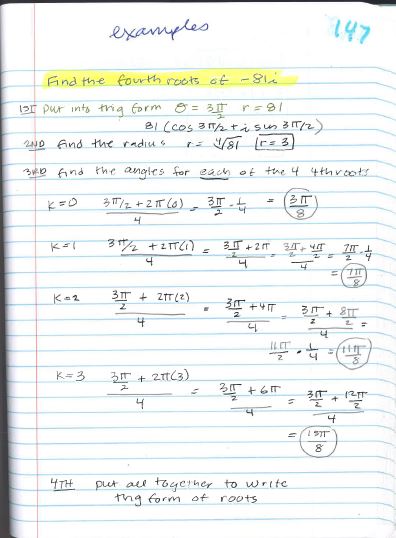 examples
147
Find the fourth roots of -81i
1ST Put into trig form θ = 3π/2 r = 81
81 (cos 3π/2 + i sin 3π/2)
2ND find the radius r = ∜81 r = 3
3RD find the angles for each of the 4 4th roots
K=0 (3π/2 + 2π(0))/4 = 3π/2 · 1/4 = 3π/8
K=1 (3π/2 + 2π(1))/4 = (3π/2 + 2π)/4 = (3π/2 + 4π/2)/4 = 7π/2 · 1/4
= 7π/8
K=2 (3π/2 + 2π(2))/4 = (3π/2 + 4π)/4 = (3π/2 + 8π/2)/4 =
11π/2 · 1/4 = 11π/8
K=3 (3π/2 + 2π(3))/4 = (3π/2 + 6π)/4 = (3π/2 + 12π/2)/4
= 15π/8
4TH put all together to write
trig form of roots